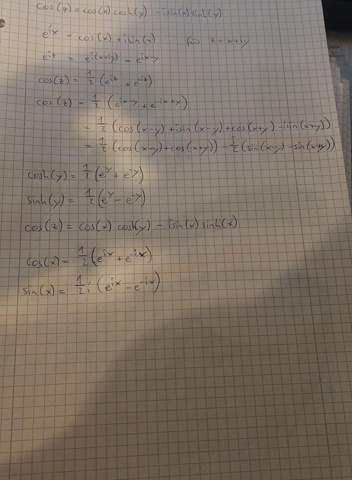 cos(z) = cos(x) cosh(y) - isin(x) sinh(y)
e^ix = cos(x) + isin(x) für z = x+iy
e^iz = e^i(x+iy) = e^ix-y
cos(z) = 1/2 (e^iz + e^-iz)
cos(z) = 1/2 (e^ix-y + e^-ix+y)
= 1/2 (cos(x-y) + isin(x-y) + cos(x+y) - isin(x+y))
= 1/2 (cos(x-y) + cos(x+y)) - i/2 (sin(x-y) - sin(x+y))
cosh(y) = 1/2 (e^y + e^-y)
sinh(y) = 1/2 (e^y - e^-y)
cos(z) = cos(x) cosh(y) - isin(x) sinh(x)
cos(x) = 1/2 (e^ix + e^-ix)
sin(x) = 1/2i (e^ix - e^-ix)